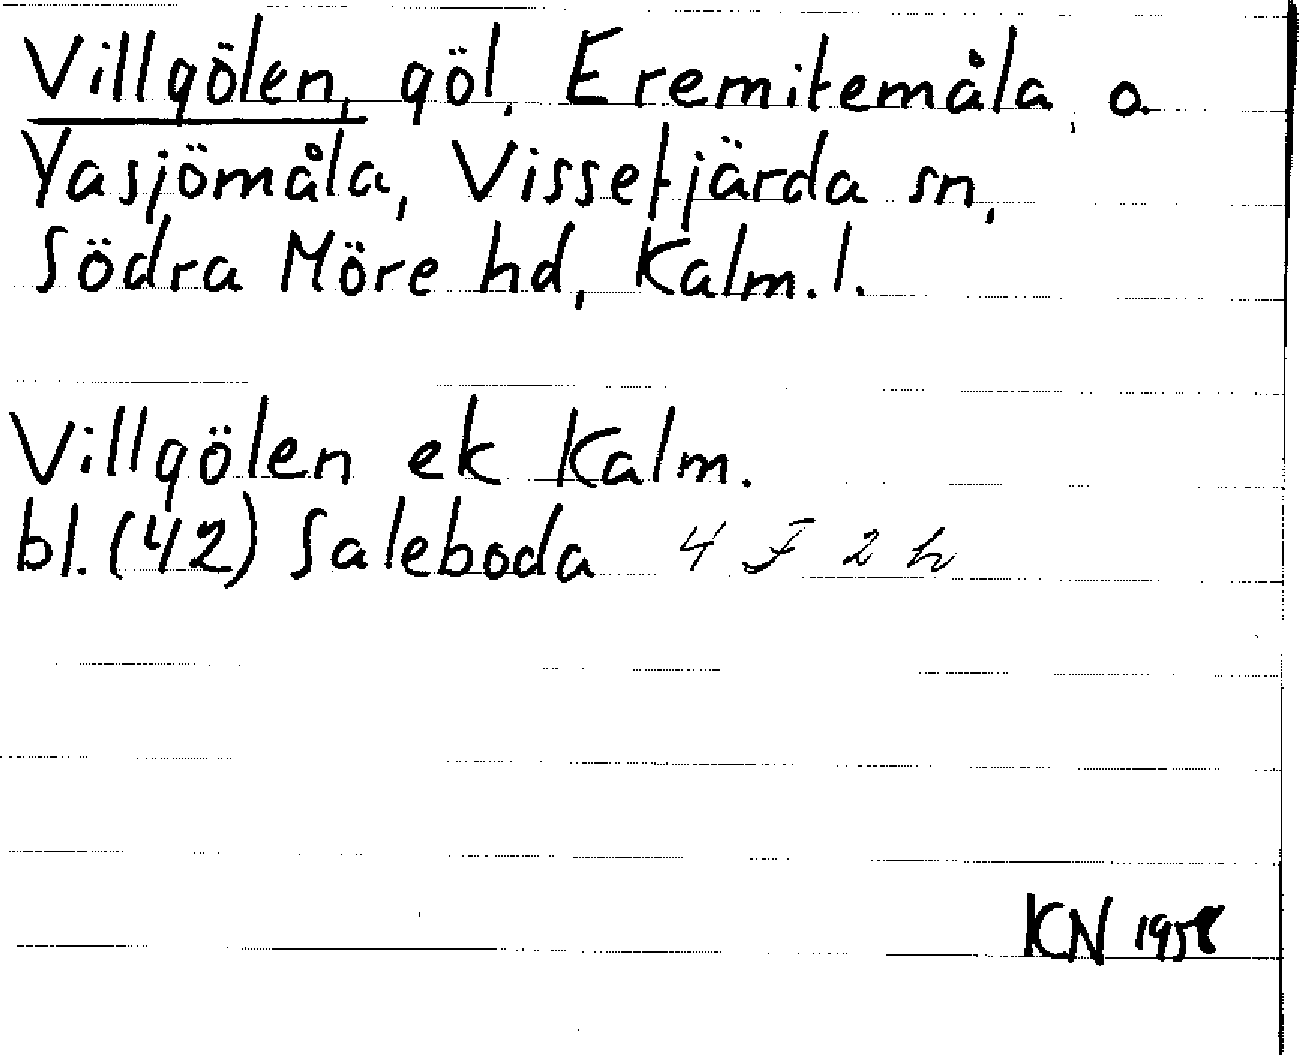 Villgölen, göl, Eremitemåla, o.
Yasjömåla, Vissefjärda sn,
Södra Möre hd, Kalm. l.
Villgölen ek Kalm.
bl. (42) Saleboda 4 F 2 h
KN 1958